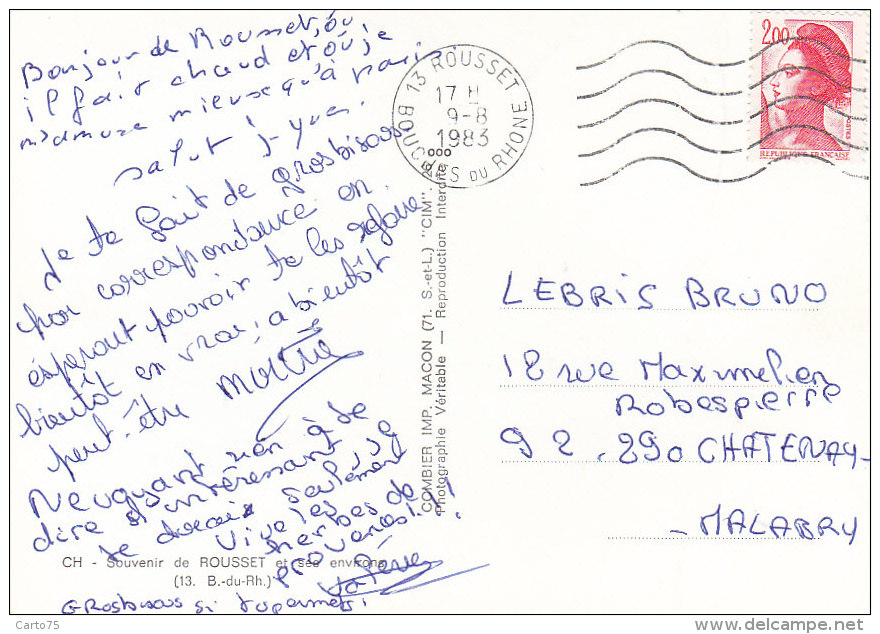 Bonjour de Rousset, où
il fait chaud et où je
m'amuse mieux qu'à Paris.
Salut! J-Yves.
Je te fait de grosbisous
par correspondance en
espérant pouvoir te les refaire
bientôt en vrai, a bientôt
peut-être
N'eyant rien à te
dire d'intéressant je
te dirais seulement
Vive les
herbes de
provences!
Grosbisous si tu permets!
CH - Souvenir de ROUSSET et ses environs
(13. B.-du-Rh.)
COMBIER IMP. MACON (71. S.-et-L.) "CIM".
Photographie Véritable — Reproduction Interdite
13 ROUSSET
17 H
9-8
1983
BOUCHES DU RHONE
2,00
POSTES
REPUBLIQUE FRANÇAISE
LEBRIS BRUNO
18 rue Maximelien
Robespierre
92.290 CHATENAY-
-MALABRY
Carto74
delcampe.net